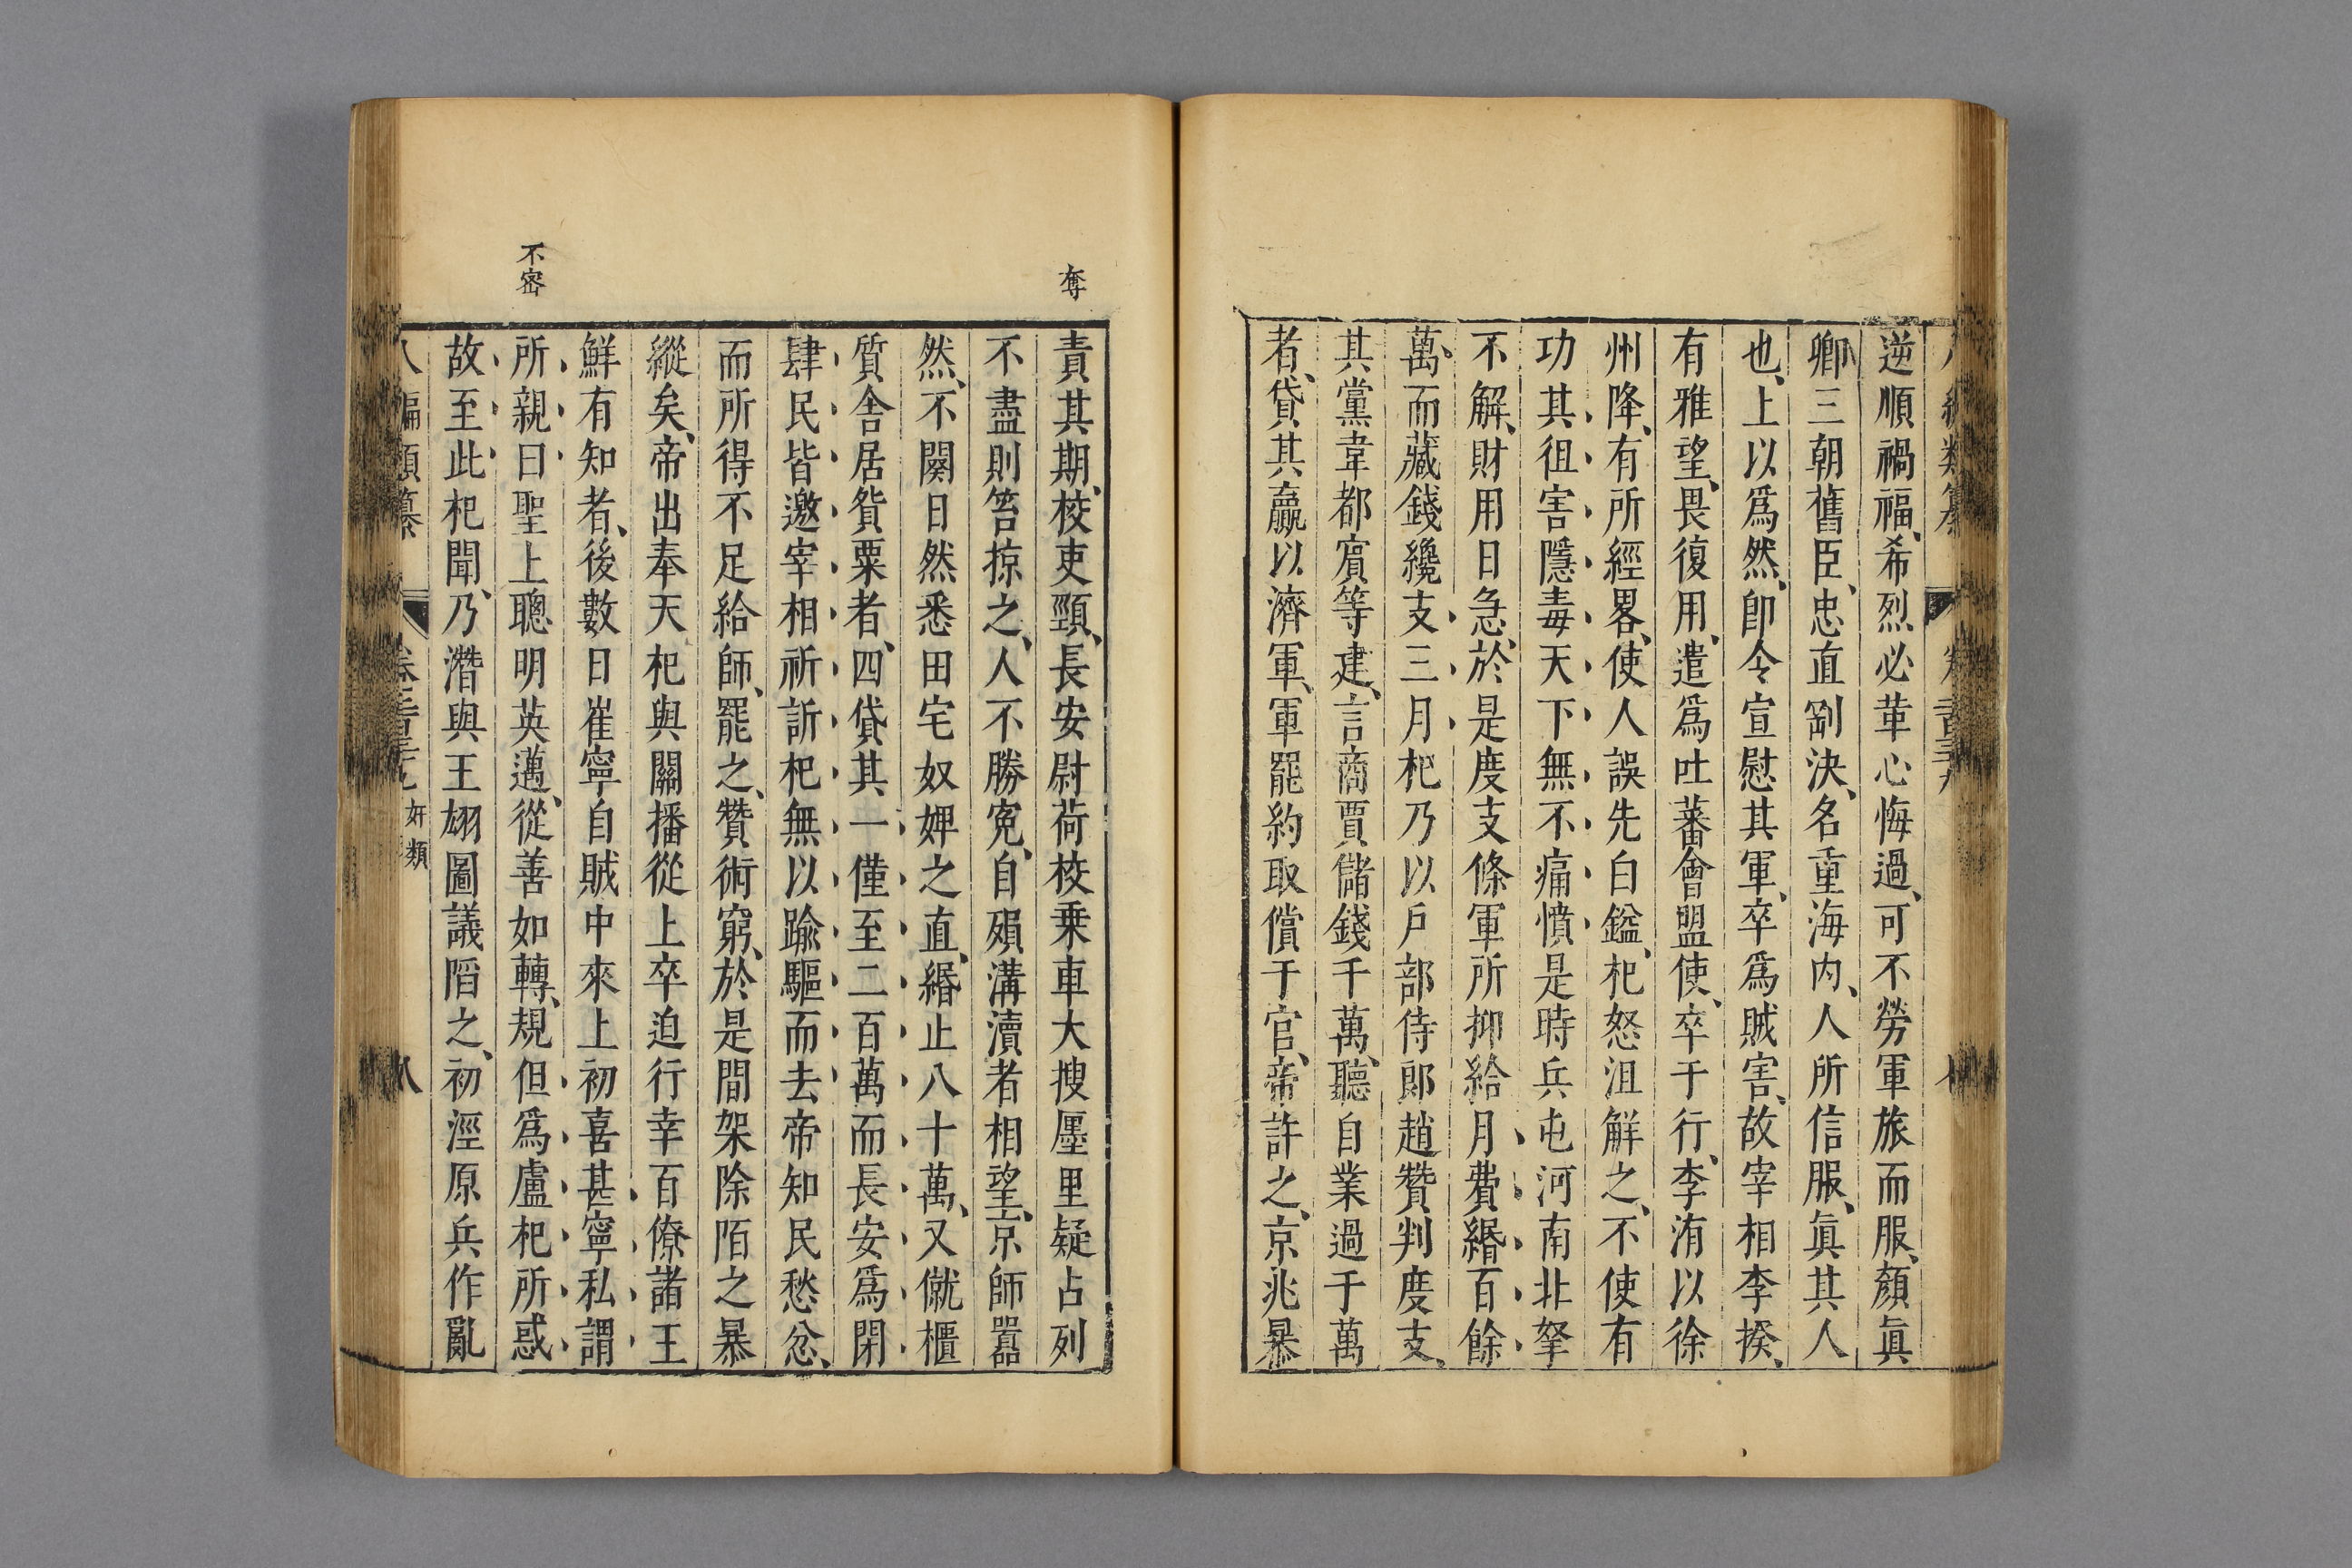 逆順禍福、希烈必革心悔過、可不勞軍旅而服、顏眞
卿三朝舊臣、忠直剛決、名重海内、人所信服、眞其人
也、上以爲然、卽令宣慰其軍、卒爲賊害、故宰相李揆、
有雅望、畏復用、遣爲吐蕃會盟使、卒于行、李洧以徐
州降、有所經畧、使人誤先白鎰、杞怒沮解之、不使有
功其徂害隱毒天下無不痛憤是時兵屯河南北挐
不解、財用日急、於是度支條軍所抑給月費緡百餘
萬、而藏錢纔支三月杞乃以戶部侍郎趙贊判度支、
其黨韋都賔等建、言商賈儲錢千萬、聽自業過于萬
者、貸其贏以濟軍、軍罷約取償于官、帝許之、京兆暴
責其期、校吏頸、長安尉荷校乗車大搜廛里疑占列
不盡則笞掠之、人不勝寃、自殞溝瀆者相望、京師囂
然、不闋日然悉田宅奴婢之直、緡止八十萬、又僦櫃
質舍居貲粟者、四貸其一僅至二百萬而長安爲閉
肆民皆邀宰相祈訢杞無以踰驅而去帝知民愁忿、
而所得不足給師、罷之、贊術窮、於是間架除陌之暴
縱矣、帝出奉天杞與關播從上卒迫行幸百僚諸王
鮮有知者、後數日崔寧自賊中來上初喜甚寧私謂
所親曰聖上聰明英邁、從善如轉、規但爲盧杞所惑
故至此杞聞、乃潛與王翃圖議䧟之、初涇原兵作亂
八編類纂 奸類 八
奪
不密